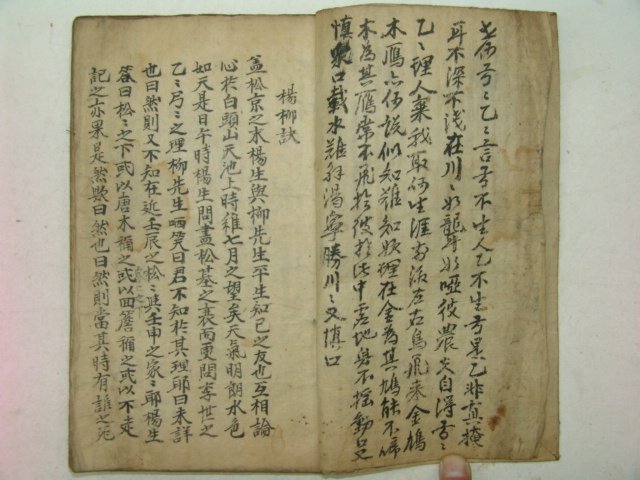 老弓弓乙乙言弓不生人乙不生弓異乙非真掩
耳不深不浅在川川如龍耳如啞彼農夫自得弓弓
乙乙理人棄我取何生涯前後左右烏飛來金鳩
木鴈亦何說似知難知妖理在金為其鳩能不啼
木為其鴈常不飛於彼於此中虛地毋不搖動口又
慎衆口載水難解渴寧勝川川又慎口
楊柳訣
盖松京之末楊生與柳先生平生知己之友也互相論
心於白頭山天池上時維七月之望矣天氣明朗水色
如天是日午時楊生問盡松基之衰而更問李世之
乙乙弓弓之理柳先生哂笑曰君不知於其理耶曰未詳
也曰然則又不知在近壬辰之松松與壬申之家家耶楊生
答曰松松之下或以唐木稱之或以四簷稱之或以不走
記之亦果是然歟曰然也曰然則當其時有誰之元